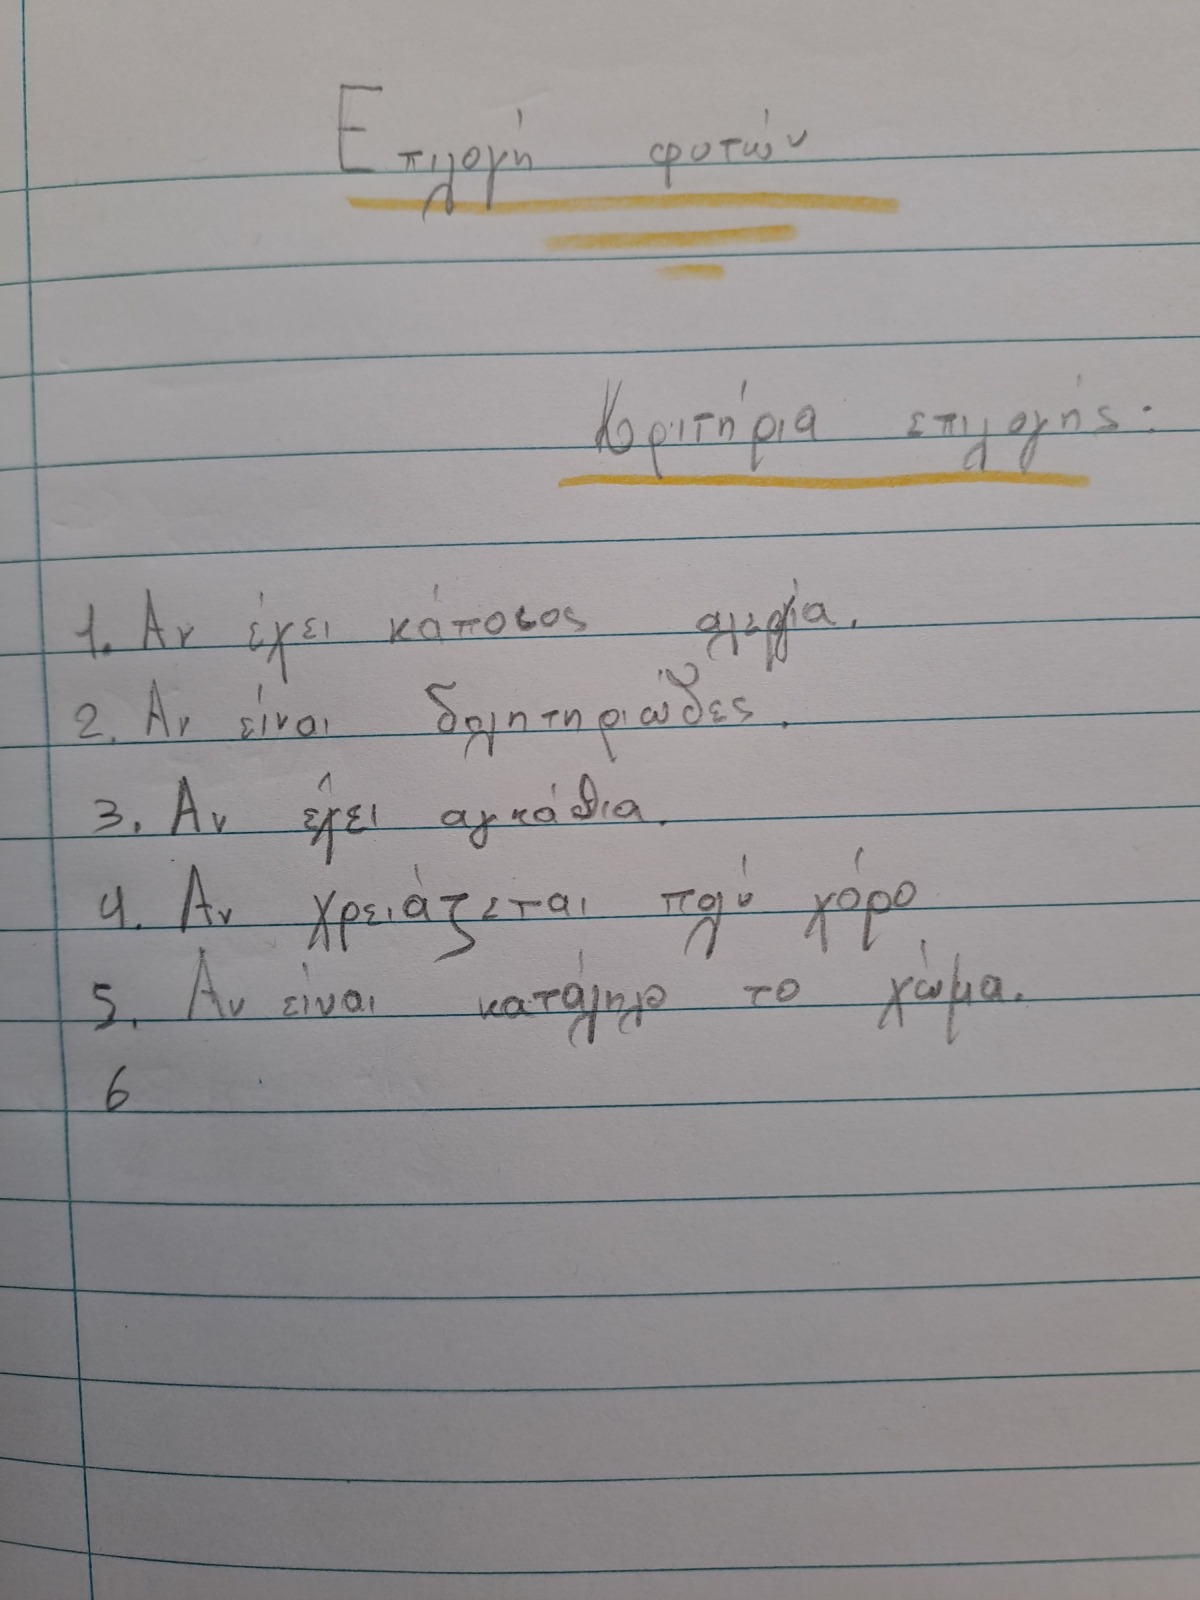 Επιλογή φυτών
Κριτήρια επιλογής:
1. Αν έχει κάποιος αλεργία.
2. Αν είναι δηλητηριώδες.
3. Αν έχει αγκάθια.
4. Αν χρειάζεται πολύ χόρο
5. Αν είναι κατάληλο το χώμα.
6